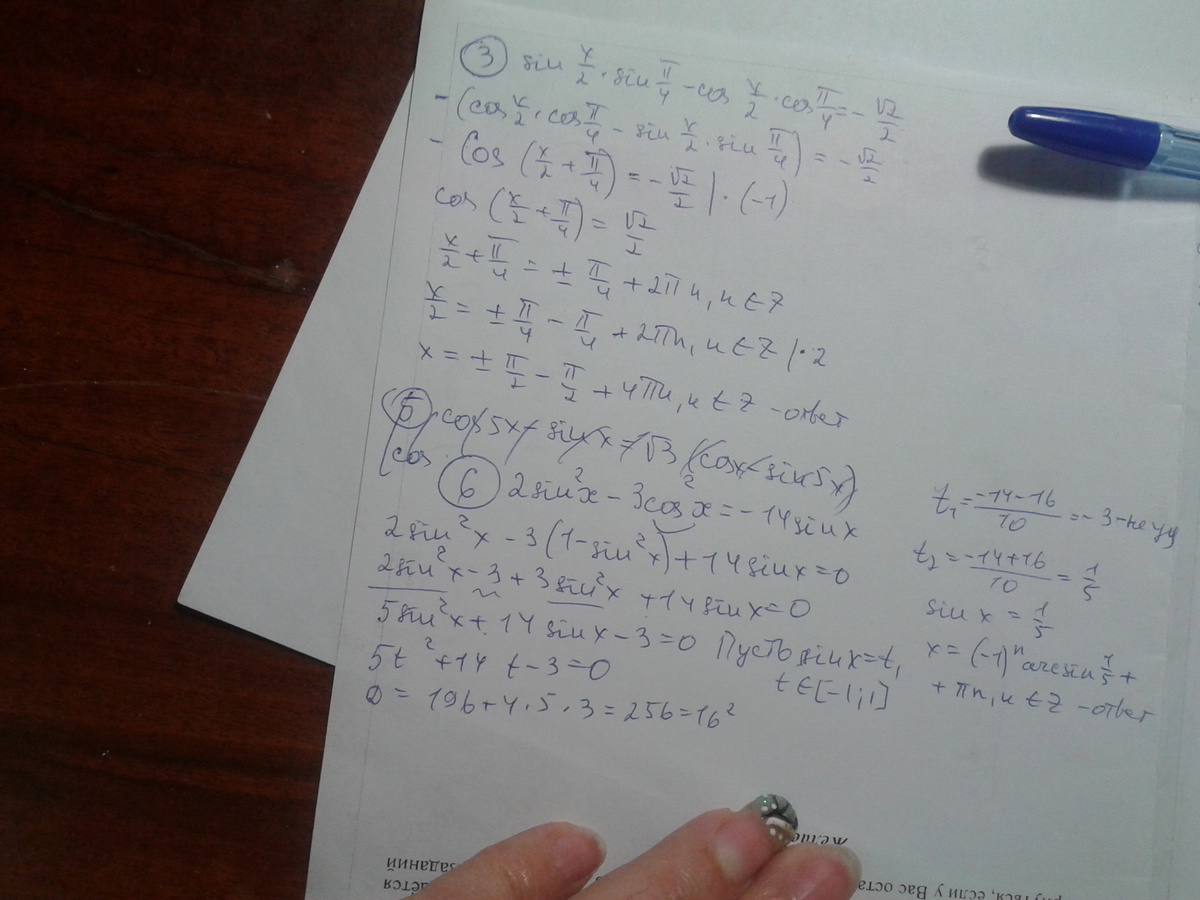 ③ sin x/2 · sin π/4 - cos x/2 · cos π/4 = - √2/2
- (cos x/2 · cos π/4 - sin x/2 · sin π/4) = - √2/2
- Cos (x/2 + π/4) = - √2/2 | · (-1)
cos (x/2 + π/4) = √2/2
x/2 + π/4 = ± π/4 + 2πn, n ∈ Z
x/2 = ± π/4 - π/4 + 2πn, n ∈ Z | · 2
x = ± π/2 - π/2 + 4πn, n ∈ Z - ответ
⑤ cos5x - sinx = √3 (cosx - sin5x)
(cos
⑥ 2sin²x - 3cos²x = -14sinx
2sin²x - 3(1-sin²x) + 14sinx = 0
2sin²x - 3 + 3sin²x + 14sinx = 0
5sin²x + 14sinx - 3 = 0 Пусть sinx = t,
t ∈ [-1; 1]
5t² + 14t - 3 = 0
D = 196 + 4 · 5 · 3 = 256 = 16²
t₁ = (-14-16)/10 = -3 -
t₂ = (-14+16)/10 = 1/5
sin x = 1/5
x = (-1)ⁿ arcsin 1/5 +
+ πn, n ∈ Z - ответ
если у Вас
заданий